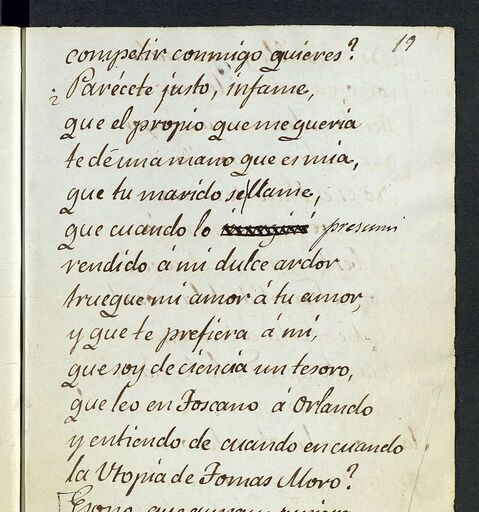 19
competir conmigo quieres?
¿Parécete justo, infame,
que el propio que me queria
te dé una mano que es mia,
que tu marido se llame,
que cuando lo presumi
rendido á mi dulce ardor
trueque mi amor á tu amor,
y que te prefiera á mi,
que soy de ciencia un tesoro,
que leo en Toscano á Orlando
y entiendo de cuando en cuando
la Utopia de Tomas Moro?